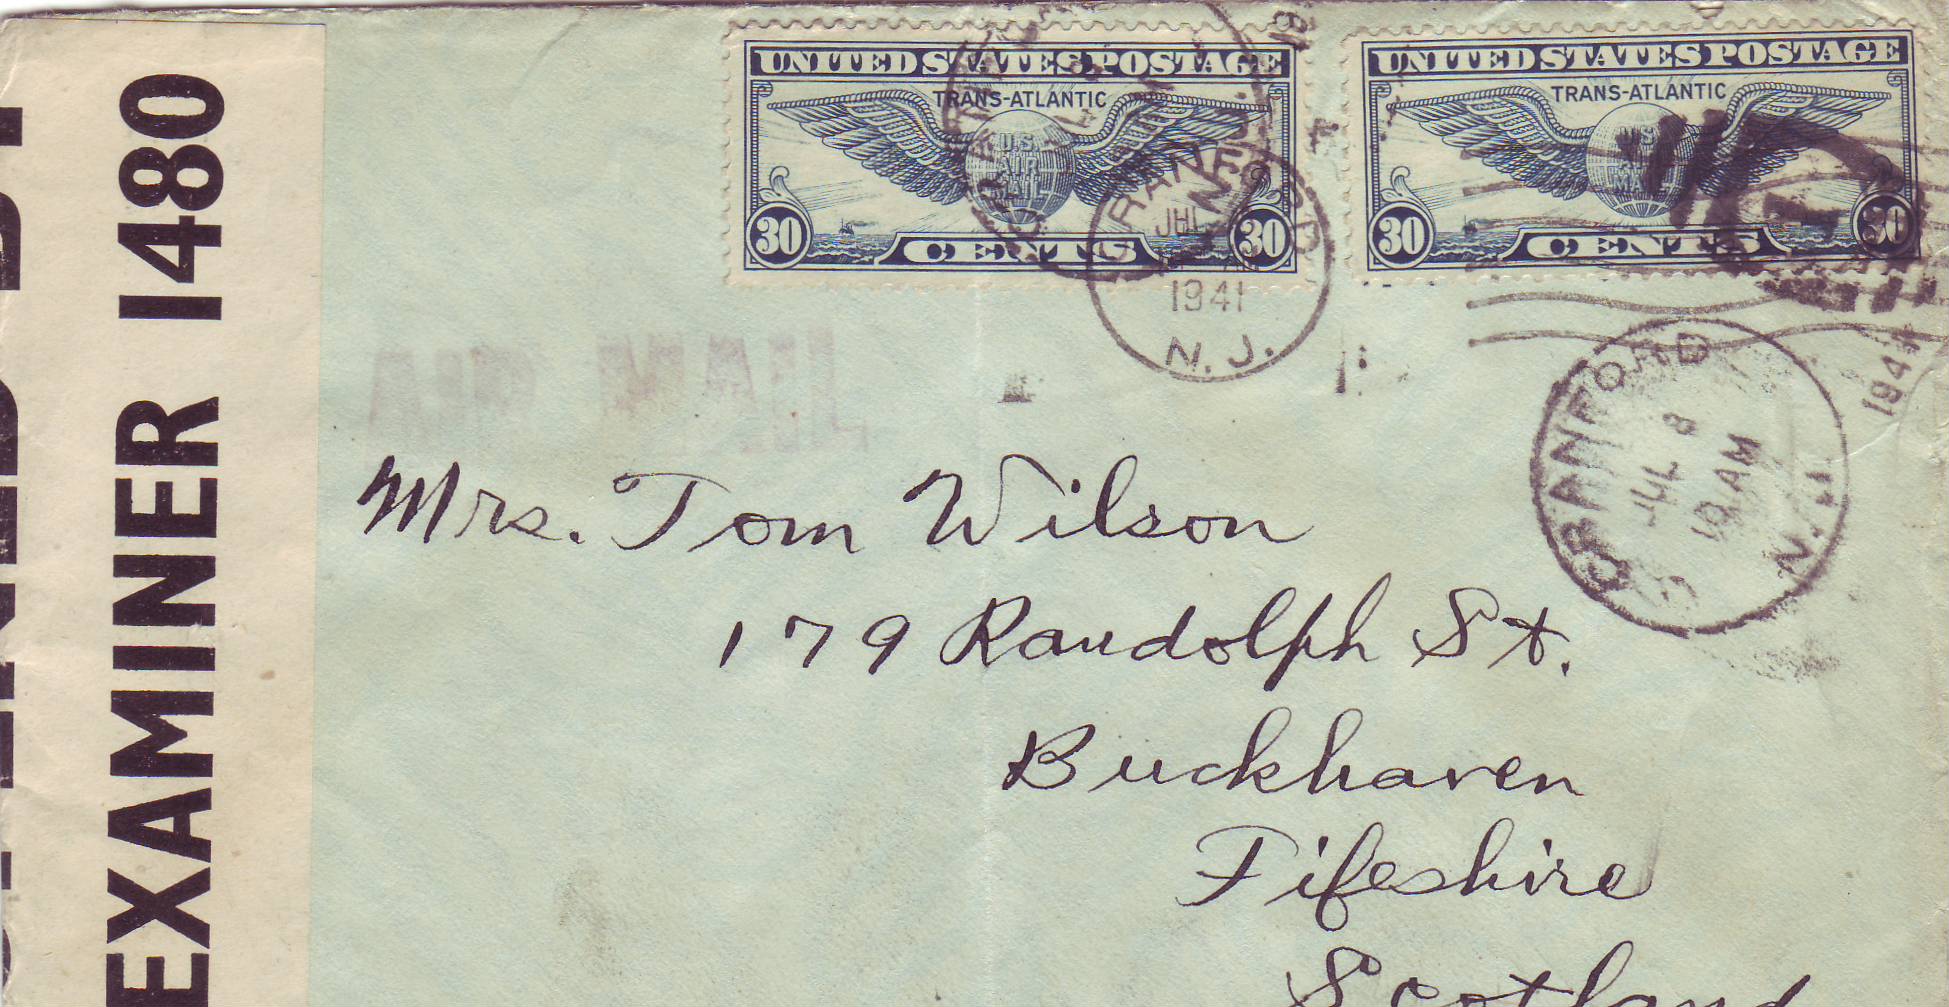 EXAMINER 1480
UNITED STATES POSTAGE
TRANS-ATLANTIC
U.S.
AIR
MAIL
30 CENTS 30
UNITED STATES POSTAGE
TRANS-ATLANTIC
U.S.
AIR
MAIL
30 CENTS 30
CRANFORD
JUL
1941
N.J.
CRANFORD
JUL 8
10 AM
N.J.
1941
Mrs. Tom Wilson
179 Randolph St.
Buckhaven
Fifeshire
Scotland